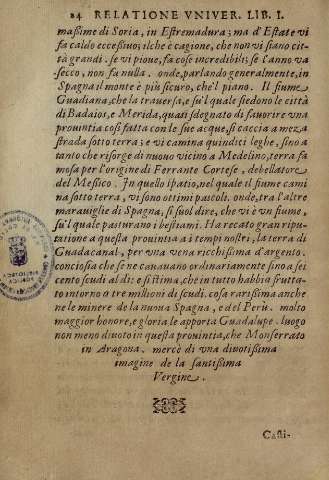 24 RELATIONE VNIVER. LIB. I.
massime di Soria, in Estremadura; ma d'Estate vi
fa caldo eccessiuo; ilche è cagione, che non vi siano cit-
tà grandi. se vi pioue, fa cose incredibili; se l'anno va
secco, non fa nulla. onde, parlando generalmente, in
Spagna il monte è più sicuro, che'l piano. Il fiume
Guadiana, che la trauersa, e su'l quale siedono le città
di Badaios, e Merida, quasi sdegnato di fauorire vna
prouintia cosi fatta con le sue acque, si caccia a meza
strada sotto terra; e vi camina quindici leghe, sino a
tanto che risorge di nuouo vicino a Medelino, terra fa
mosa per l'origine di Ferrante Cortese, debellatore
del Messico. In quello spatio, nel quale il fiume cami
na sotto terra, vi sono ottimi pascoli. onde, tra l'altre
marauiglie di Spagna, si suol dire, che vi è vn fiume,
su'l quale pasturano i bestiami. Ha recato gran ripu-
tatione a questa prouintia a i tempi nostri, la terra di
Guadacanal, per vna vena ricchissima d'argento.
conciosia che se ne cauauano ordinariamente sino a sei
cento scudi al dì: e si stima, che in tutto habbia frutta-
to intorno a tre millioni di scudi. cosa rarissima anche
ne le minere de la nuoua Spagna, e del Perù. molto
maggior honore, e gloria le apporta Guadalupe. luogo
non meno diuoto in questa prouintia, che Monserrato
in Aragona. mercè di vna diuotissima
imagine de la santissima
Vergine.
Casti-